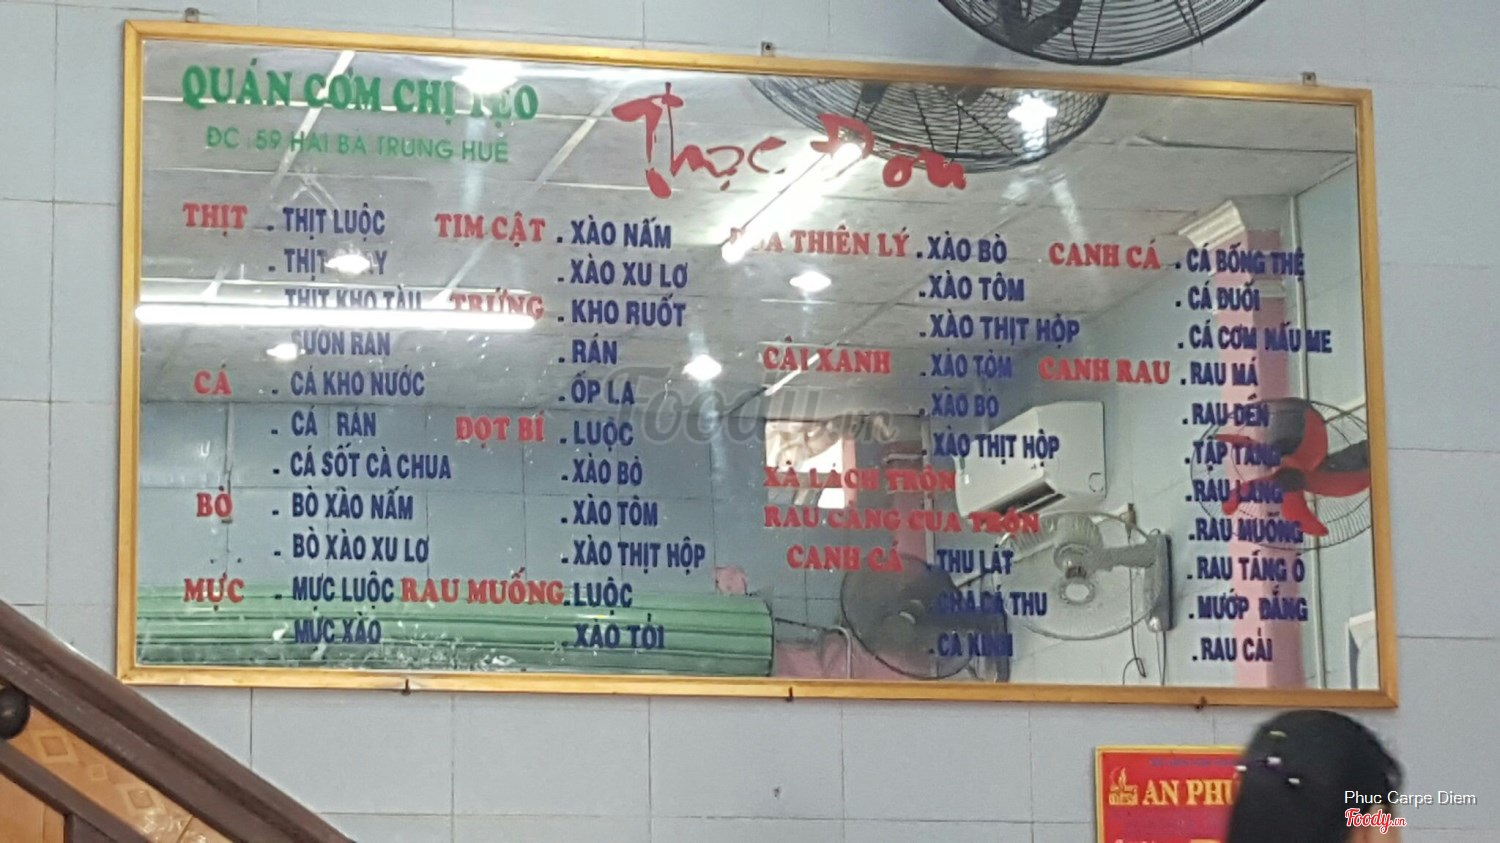 QUÁN CƠM CHỊ TẸO
ĐC : 59 HAI BÀ TRƯNG HUẾ
Thực Đơn
THỊT . THỊT LUỘC
. THỊT
THỊT KHO TÀU
SƯỜN RÁN
CÁ . CÁ KHO NƯỚC
. CÁ RÁN
. CÁ SỐT CÀ CHUA
BÒ . BÒ XÀO NẤM
. BÒ XÀO XU LƠ
MỰC . MỰC LUỘC
MỰC XÀO
TIM CẬT . XÀO NẤM
. XÀO XU LƠ
TRỨNG . KHO RUỐT
. RÁN
. ỐP LA
ĐỌT BÍ . LUỘC
. XÀO BÒ
. XÀO TÔM
. XÀO THỊT HỘP
RAU MUỐNG . LUỘC
. XÀO TỎI
THIÊN LÝ . XÀO BÒ
. XÀO TÔM
. XÀO THỊT HỘP
CẢI XANH . XÀO TÔM
. XÀO BÒ
. XÀO THỊT HỘP
XÀ LÁCH TRỘN
RAU CÀNG CUA TRỘN
CANH CÁ . THU LÁT
. CHẢ CÁ THU
. CÁ KÌNH
CANH CÁ . CÁ BỐNG THỆ
. CÁ ĐUỐI
. CÁ CƠM NẤU ME
CANH RAU . RAU MÁ
. RAU DỀN
. TẬP TÀNG
. RAU LANG
. RAU MUỐNG
. RAU TẦNG Ô
. MƯỚP ĐẮNG
. RAU CẢI
Foody.vn
AN PHÚ
Phuc Carpe Diem
Foody.vn